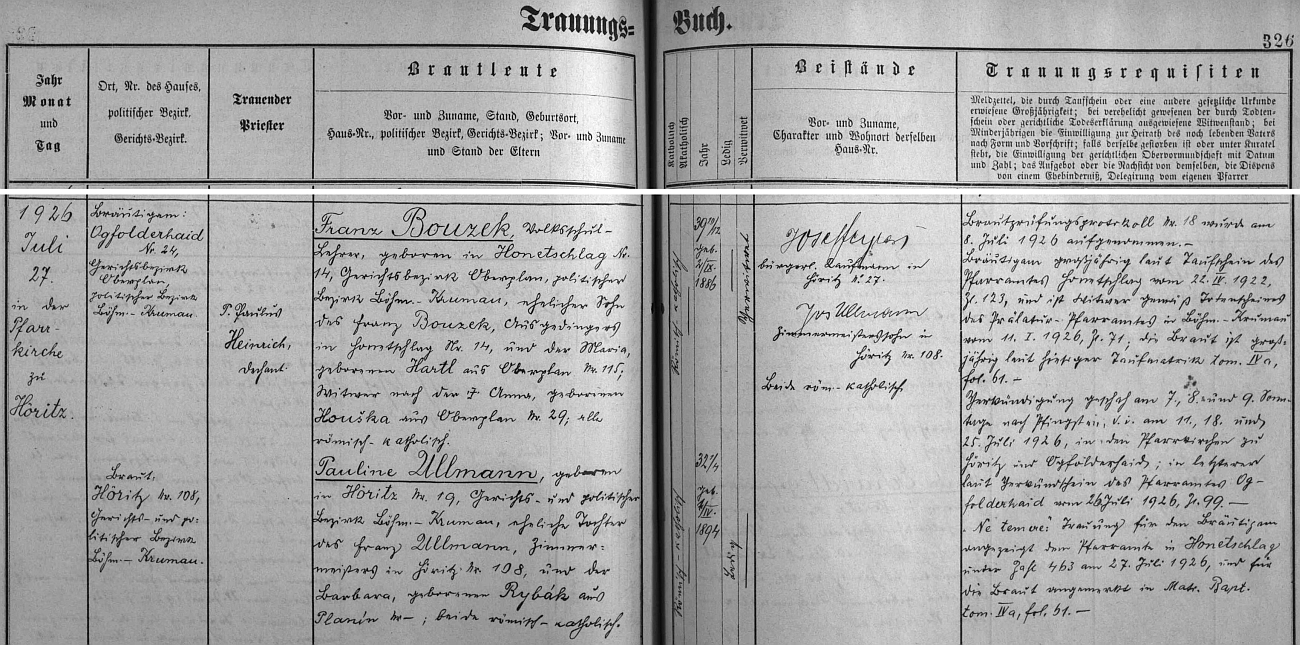 Trauungs= Buch.
326
Jahr
Monat
und
Tag
Ort, Nr. des Hauses,
politischer Bezirk.
Gerichts-Bezirk.
Trauender
Priester
Brautleute
Vor- und Zuname, Stand, Geburtsort,
Haus-Nr., politischer Bezirk, Gerichts-Bezirk; Vor- und Zuname
und Stand der Eltern
Katholisch
Akatholisch
Jahr
Ledig
Verwitwet
Beistände
Vor- und Zuname,
Charakter und Wohnort derselben
Haus-Nr.
Trauungsrequisiten
Meldzettel, die durch Taufschein oder eine andere gesetzliche Urkunde
erwiesene Großjährigkeit; bei verehelicht gewesenen der durch Todten-
schein oder gerichtliche Todeserklärung ausgewiesene Witwenstand; bei
Minderjährigen die Einwilligung zur Heirath des noch lebenden Vaters
nach Form und Vorschrift; falls derselbe gestorben ist oder unter Kuratel
steht, die Einwilligung der gerichtlichen Obervormundschaft mit Datum
und Zahl; das Aufgebot oder die Nachsicht von demselben, die Dispens
von einem Ehehinderniß, Delegirung vom eigenen Pfarrer
1926
Juli
27.
in der
Pfarr-
kirche
zu
Höritz.
Bräutigam:
Ogfolderhaid
Nr. 24,
Gerichtsbezirk
Oberplan,
politischer Bezirk
Böhm.-Krumau.
Braut:
Höritz Nr. 108,
Gerichts- und po-
litischer Bezirk
Böhm.-Krumau.
P. Paulus
Heinrich,
Dechant.
Franz Bouzek, Volksschul-
Lehrer, geboren in Honetschlag Nr.
14, Gerichtsbezirk Oberplan, politischer
Bezirk Böhm.-Krumau, ehelicher Sohn
des Franz Bouzek, Ausgedingers
in Honetschlag Nr. 14, und der Maria,
geborenen Hartl aus Oberplan Nr. 115,
Witwer nach der † Anna, geborenen
Houška aus Oberplan Nr. 29; alle
römisch-katholisch.
Pauline Ullmann, geboren
in Höritz Nr. 19, Gerichts- und politischer
Bezirk Böhm.-Krumau, eheliche Tochter
des Franz Ullmann, Zimmer-
meisters in Höritz Nr. 108, und der
Barbara, geborenen Rybák aus
Planín Nr. –; beide römisch-katholisch.
römisch-katholisch
39 10/12
geb.
1886
Verwitwet
römisch-katholisch
geb.
1894
Ledig
bürgerl. Kaufmann in
Höritz Nr. 27.
Jos Ullmann
Zimmermeisterssohn in
Höritz Nr. 108.
Beide röm.-katholisch.
Brautprüfungsprotokoll Nr. 18 wurde am
8. Juli 1926 aufgenommen.–
Bräutigam großjährig laut Taufschein des
Pfarramtes Honetschlag vom 22. IV. 1922,
Zl. 123, und ist Witwer gemäß Totenscheines
des Prälatur-Pfarramtes in Böhm.-Krumau
vom 11. I. 1926, Zl. 71; die Braut ist groß-
jährig laut hiesiger Taufmatrik tom. IVa,
fol. 61.–
Verkündigung geschah am 7., 8. und 9. Sonn-
tage nach Pfingsten, d. i. am 11., 18. und
25. Juli 1926, in den Pfarrkirchen zu
Höritz und Ogfolderhaid; in letzterer
laut Verkündschein des Pfarramtes Og-
folderhaid vom 26. Juli 1926, Zl. 99.–
"Ne temere": Trauung für den Bräutigam
angezeigt dem Pfarramte in Honetschlag
unter Zahl 463 am 27. Juli 1926, und für
die Braut angemerkt in Matr. Bapt.
tom. IVa, fol. 61.–